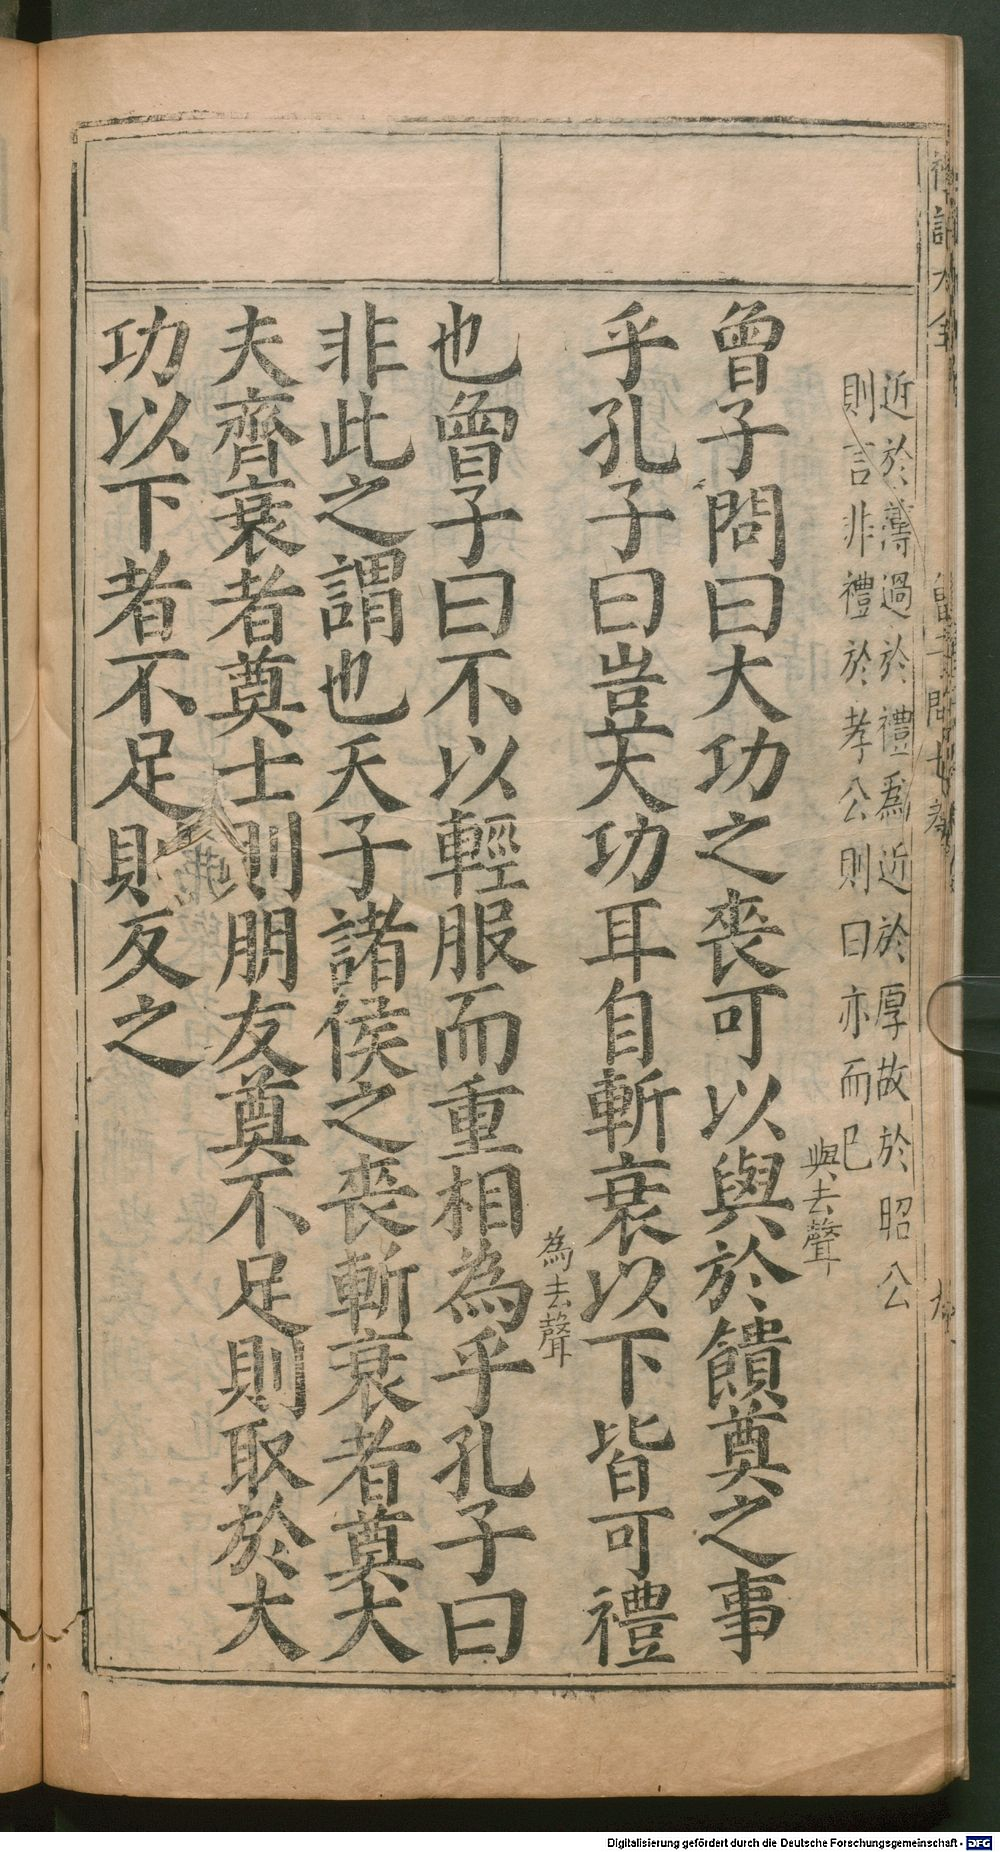 近於薄過於禮爲近於厚故於昭公
則言非禮於孝公則曰亦而已
曾子問曰大功之喪可以與於饋奠之事
與去聲
乎孔子曰豈大功耳自斬衰以下皆可禮
為去聲
也曾子曰不以輕服而重相為乎孔子曰
非此之謂也天子諸侯之喪斬衰者奠大
夫齊衰者奠士則朋友奠不足則取於大
功以下者不足則反之
Digitalisierung gefördert durch die Deutsche Forschungsgemeinschaft - DFG